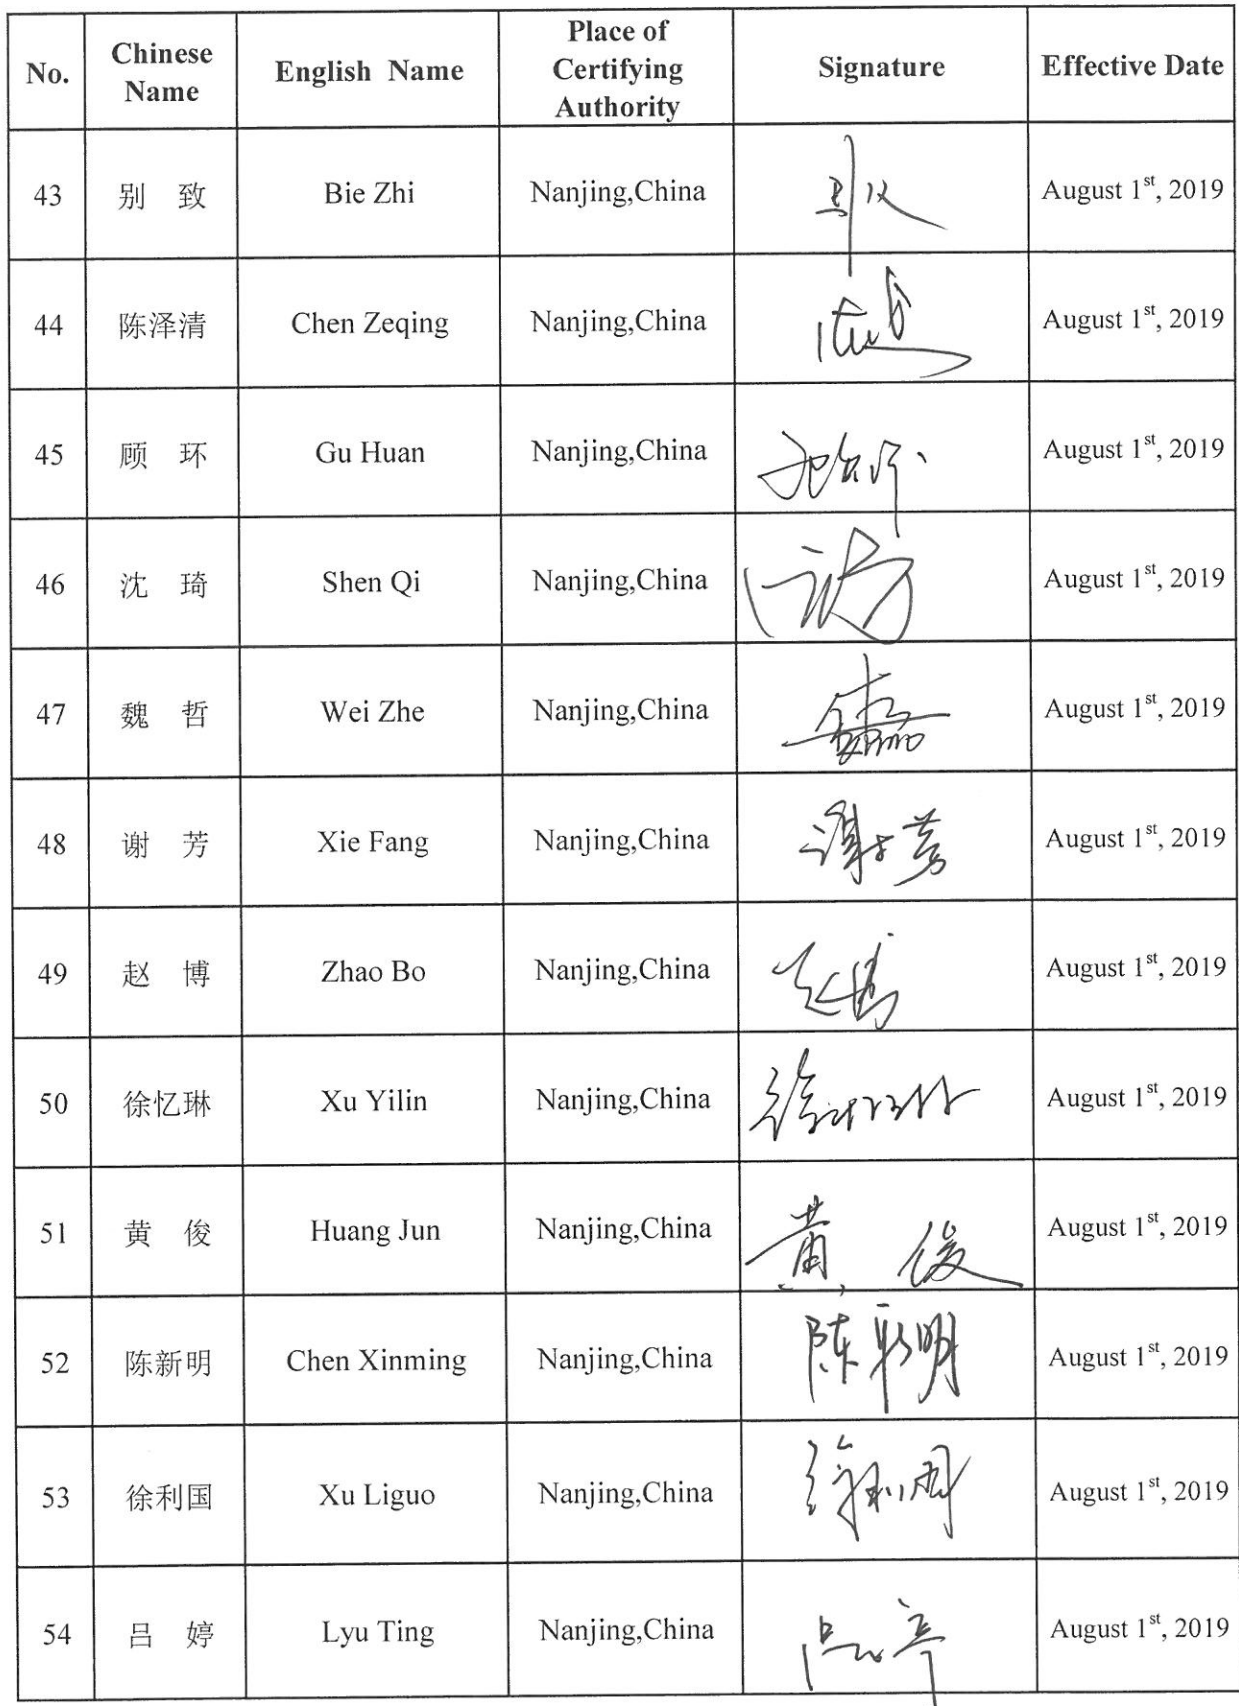 No. Chinese Name English Name Place of Certifying Authority Signature Effective Date
43 别 致 Bie Zhi Nanjing,China August 1st, 2019
44 陈泽清 Chen Zeqing Nanjing,China August 1st, 2019
45 顾 环 Gu Huan Nanjing,China August 1st, 2019
46 沈 琦 Shen Qi Nanjing,China August 1st, 2019
47 魏 哲 Wei Zhe Nanjing,China August 1st, 2019
48 谢 芳 Xie Fang Nanjing,China 谢芳 August 1st, 2019
49 赵 博 Zhao Bo Nanjing,China 赵博 August 1st, 2019
50 徐忆琳 Xu Yilin Nanjing,China 徐忆琳 August 1st, 2019
51 黄 俊 Huang Jun Nanjing,China 黄 俊 August 1st, 2019
52 陈新明 Chen Xinming Nanjing,China 陈新明 August 1st, 2019
53 徐利国 Xu Liguo Nanjing,China 徐利国 August 1st, 2019
54 吕 婷 Lyu Ting Nanjing,China 吕婷 August 1st, 2019